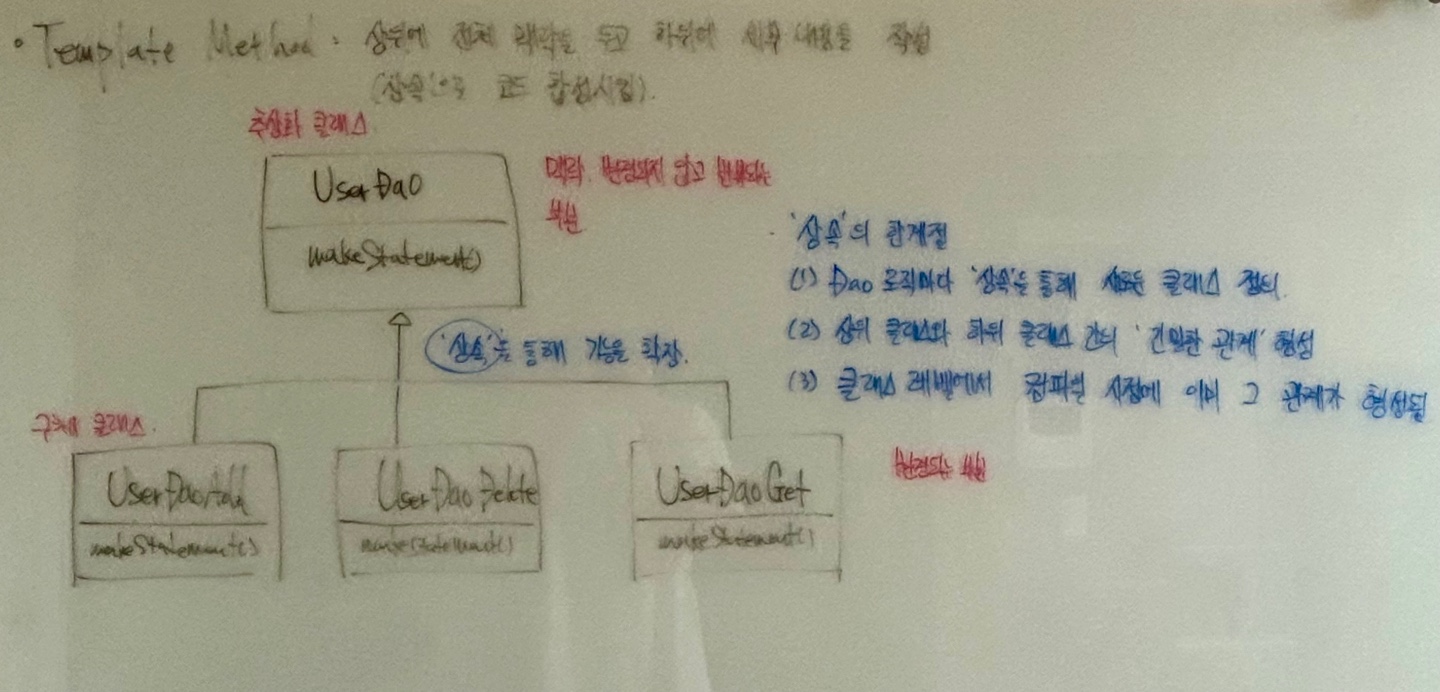 • Template Method : 상위에 전체 맥락을 두고 하위에 세부 내용을 작성
('상속'으로 코드 합성시킴).
추상화 클래스
UserDao
makeStatement()
맥락. 변경되지 않고 반복되는
부분
'상속'을 통해 기능을 확장.
'상속'의 한계점
(1) Dao 로직마다 '상속'을 통해 새로운 클래스 정의.
(2) 상위 클래스와 하위 클래스 간의 '긴밀한 관계' 형성
(3) 클래스 레벨에서 컴파일 시점에 이미 그 관계가 형성됨
구체 클래스
변경되는 부분
UserDaoAdd
makeStatement()
UserDaoDelete
makeStatement()
UserDaoGet
makeStatement()